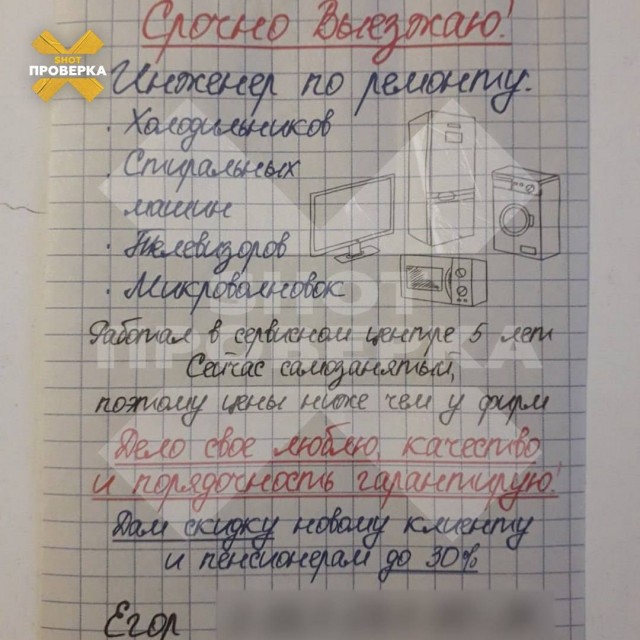 SHOT
ПРОВЕРКА
Срочно Выезжаю!
Инженер по ремонту.
· Холодильников
· Стиральных
машин
· Телевизоров
· Микроволновок
SHOT
ПРОВЕРКА
Работал в сервисном центре 5 лет
Сейчас самозанятый,
поэтому цены ниже чем у фирм
Дело свое люблю, качество
и порядочность гарантирую!
Дам скидку новому клиенту
и пенсионерам до 30%
Егор